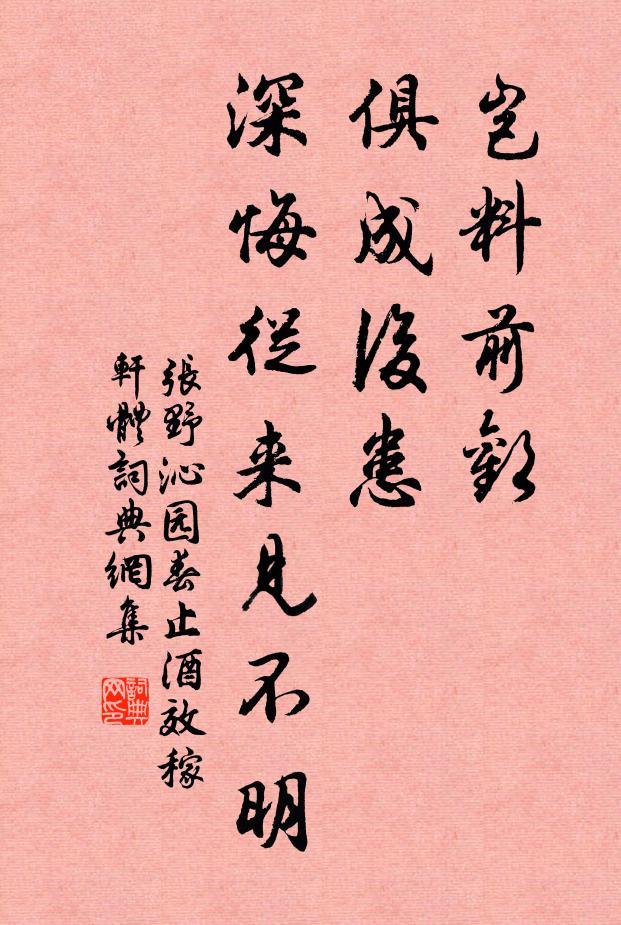 岂料前歡
俱成後患
深悔従来見不明
張野沁园春止酒效稼
軒體詞典網集
詞典
网印